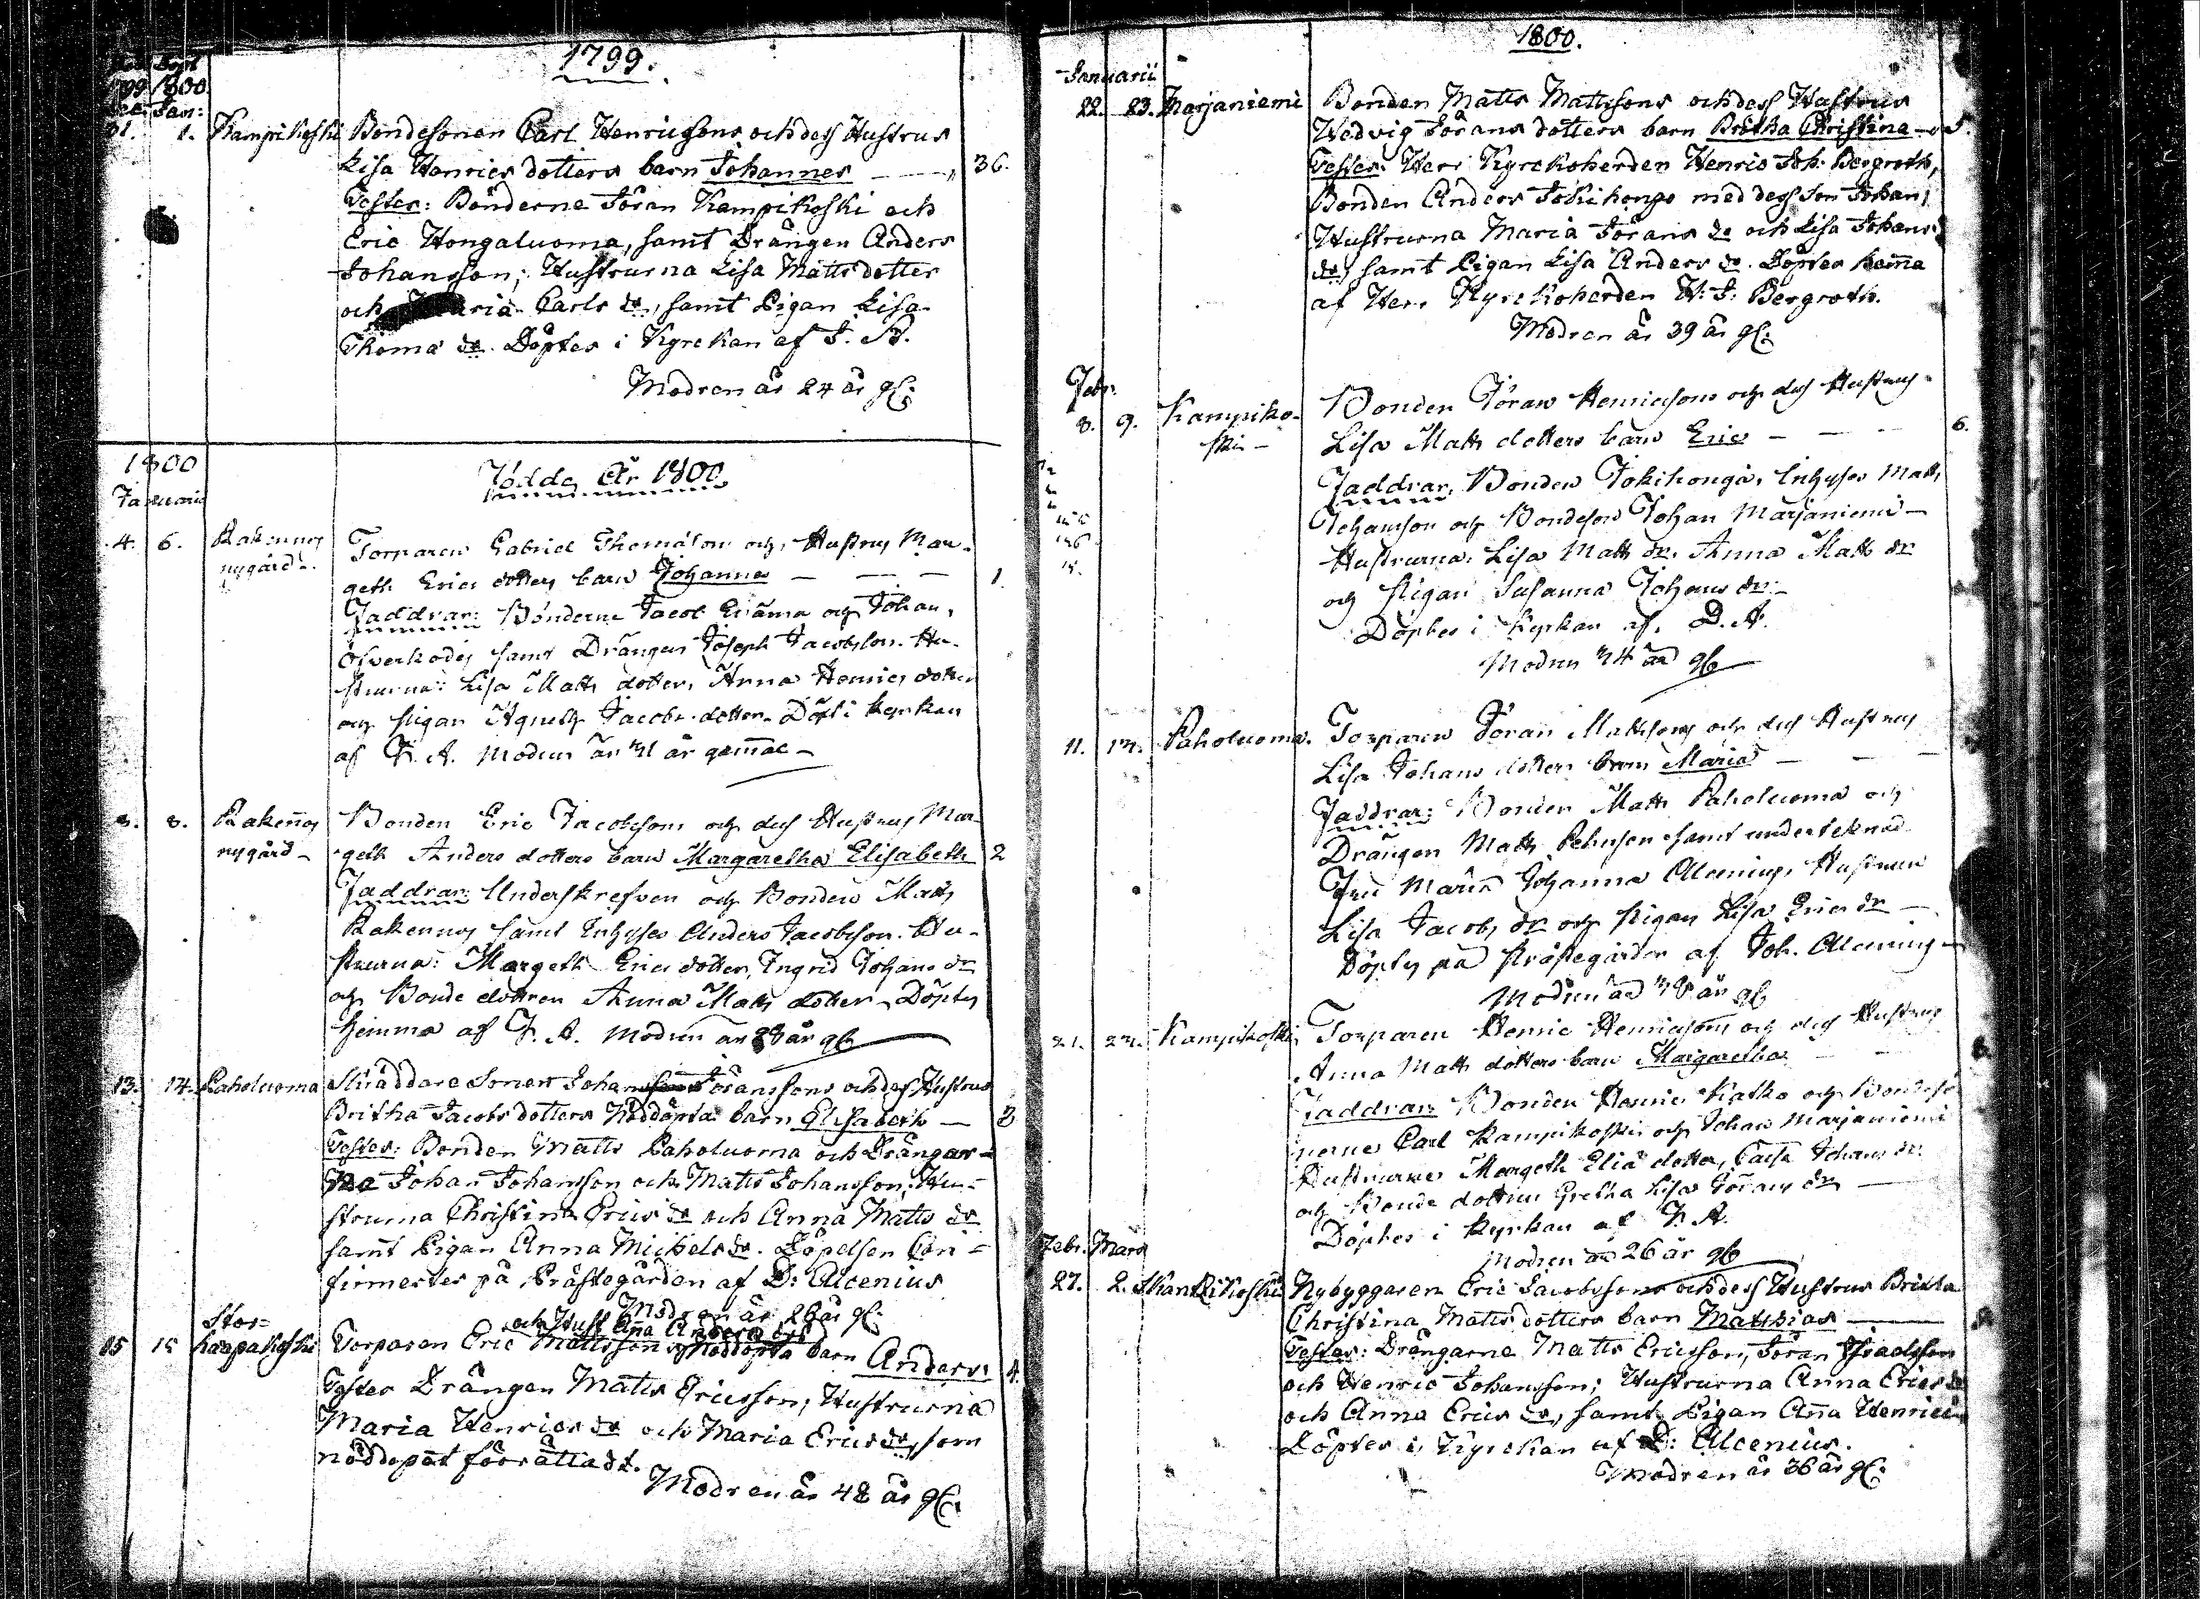 1799.
Sept
1799 1800
Dec: Jan:
31. 1. Kampikoski Bondesonen Carl Henricsons och dess Hustrus
Lisa Henrics dotters barn Johannes 36.
Testes: Bönderne Jöran Kampikoski och
Eric Hongaluoma, samt Drängen Anders
Johansson; Hustrurna Lisa Matts dotter
och Maria Carls dr, samt Pigan Lisa
Thoma dr. Döptes i Kyrckan af J. A.
Modren är 24 år gl:
1800
Januarii
Födde År 1800
4. 6. Rakennus
nygård
Torparen Gabriel Thomasson och Hustrus Mar-
geth Erics dotters barn Johannes 1.
Faddrar: Bönderne Jacob och Johan
samt Drängen Joseph Jacobsson. Hu-
strurna: Lisa Matts dotter, Anna Henrics dotter
och Pigan Agneta Jacobs dotter. Döpt i kyrkan
af J. A. Modren är 31 år gammal
8. 8. Rakennus
nygård
Bonden Eric Jacobssons och dess Hustrus Mar-
geth Anders dotters barn Margaretha Elisabeth 2
Faddrar: Underskrefven och Bonden Matts
Rakennus samt Inhyses Anders Jacobsson. Hu-
strurna: Margeth Erics dotter, Ingrid Johans dr
och Bonde dottren Anna Matts dotter. Döptes
hemma af J. A. Modren är 28 år gl
13. 14. Paholuoma Skräddare Sonen Johan Jöranssons och dess Hustrus
Britha Jacobs dotters Nöddöpta barn Elisabeth 3
Testes: Bonden Matts Paholuoma och Drängar-
ne Johan Johansson och Matts Johansson; Hu-
strurna Christina Erics dr och Anna Matts dr
samt Pigan Anna Michels dr. Döpelsen Con-
firmertes på Prästegården af D: Alcenius
Modren är 26 år gl:
och Hust Aña Anders dot
Stor-
15 15 Haapakoski Torparen Eric Mattssons Nöddöpta barn Anders: 4.
Testes Drängen Matts Ericsson; Hustrurna
Maria Henrics dr och Maria Erics dr, som
nöddopet förrättadt.
Modren är 42 år gl.
1800.
Januarii
22. 23. Marjaniemi Bonden Matts Mattssons och dess Hustrus
Hedvig Jörans dotters barn Britha Christina 5.
Testes: Herr Kyrckoherden Henric Joh: Bergroth,
Bonden Anders Jokihonga med dess Son Johan;
Hustrurna Maria Jörans dr och Lisa Johans
dr, samt Pigan Lisa Anders dr. Döptes hema
af Herr Kyrckoherden H: J: Bergroth.
Modren är 39 år gl:
Febr:
8. 9. Kampiko-
ski
Bonden Jöran Henricsons och dess Hustrus
Lisa Matts dotters barn Eric 6.
Faddrar: Bonden Jokihonga, Inhyses Matts
Johansson och Bondeson Johan Marjaniemi
Hustrurna: Lisa Matts dr. Anna Matts dr
och Pigan Susanna Johans dr.
Döptes i Kyrkan af. D. A.
Modren 34 år gl
11. 12. Paholuoma. Torparen Jöran Mattsons och dess Hustrus
Lisa Johans dotters barn Maria
Faddrar: Bonden Matts Paholuoma och
Drängen Matts samt undertecknad
Fru Maria Johanna Alcenius, Hustrun
Lisa Jacobs dr och Pigan Lisa Erics dr
Döptes på Prästegården af Joh. Alcenius
Modren är 38 år gl
21. 22. Kampikoski Torparen Henric Henricsons och dess Hustrus
Anna Matts dotters barn Margaretha
Faddrar: Bonden Henric Katko och Bondesö-
nerne Carl Kampikoski och Johan Marjaniemi
Hustrurna Margeth Eliæ dotter, Caisa Johans dr
och Bonde dottren Gretha Lisa Jörans dr
Döptes i kyrkan af J. A.
Modren är 26 år gl
Febr. Mars
27. 2. Kantzikoski Nybyggaren Eric Jacobssons och dess Hustrus Britha
Christina Matts dotters barn Matthias
Testes: Drängarne Matts Ericsson, Jöran Israelsson
och Henric Johansson; Hustrurna Anna Erics dr
och Anna Erics dr, samt Pigan Aña Henrics
Döptes i Kyrckan af D: Alcenius.
Modren är 36 år gl: